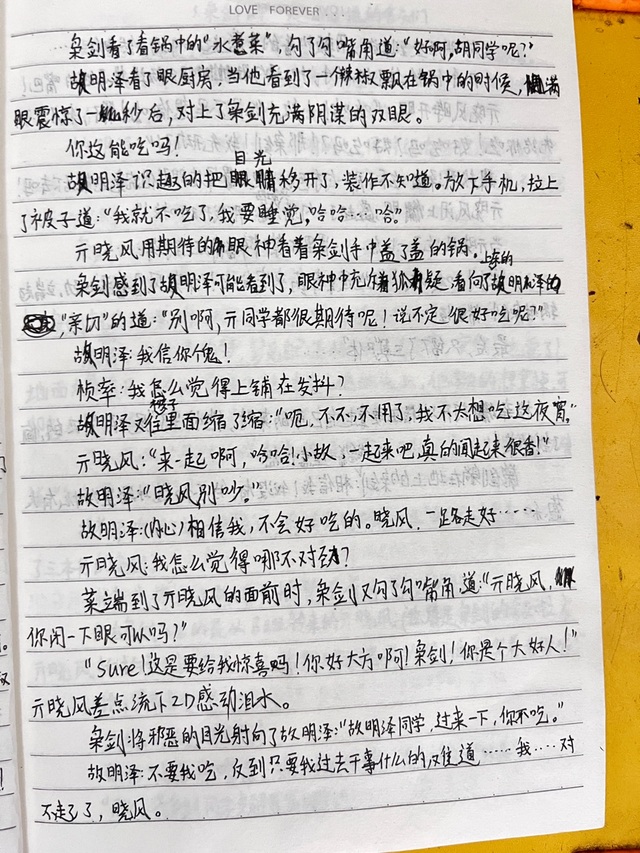 LOVE FOREVER...
枭剑看了看锅中的“水煮菜”,勾了勾嘴角道:“好啊,胡同学呢?”
故明泽看了眼厨房,当他看到了一个辣椒飘在锅中的时候,满
眼震惊了一秒后,对上了枭剑充满阴谋的双眼。
你这能吃吗!
目光
故明泽识趣的把移开了,装作不知道。放下手机,拉上
了被子道:“我就不吃了,我要睡觉,哈哈…哈。”
亓晓风用期待的眼神看着枭剑手中盖了盖的锅。
上铺的
枭剑感到了故明泽可能看到了,眼神中充斥着狐疑,看向了故明泽
,“亲切”的道:“别啊,亓同学都很期待呢!说不定很好吃呢?”
故明泽:我信你鬼!
桢率:我怎么觉得上铺在发抖?
故明泽又往里面缩了缩:“呃,不、不、不用了,我不太想吃这夜宵。”
被子
亓晓风:“来一起啊,哈哈!小故,一起来吧,真的闻起来很香!”
故明泽:“晓风别吵。”
故明泽:(内心)相信我,不会好吃的。晓风,一路走好……
亓晓风:我怎么觉得哪不对劲?
菜端到了亓晓风的面前时,枭剑又勾了勾嘴角,道:“亓晓风,
你闭一下眼可以吗?”
“Sure!这是要给我惊喜吗!你好大方啊!枭剑!你是个大好人!”
亓晓风差点流下2D感动泪水。
枭剑:将邪恶的目光射向了故明泽:“故明泽同学,过来一下,你不吃。”
故明泽:不要我吃,反到只要我过去干事什么的,难道……我……对
不起了,晓风。